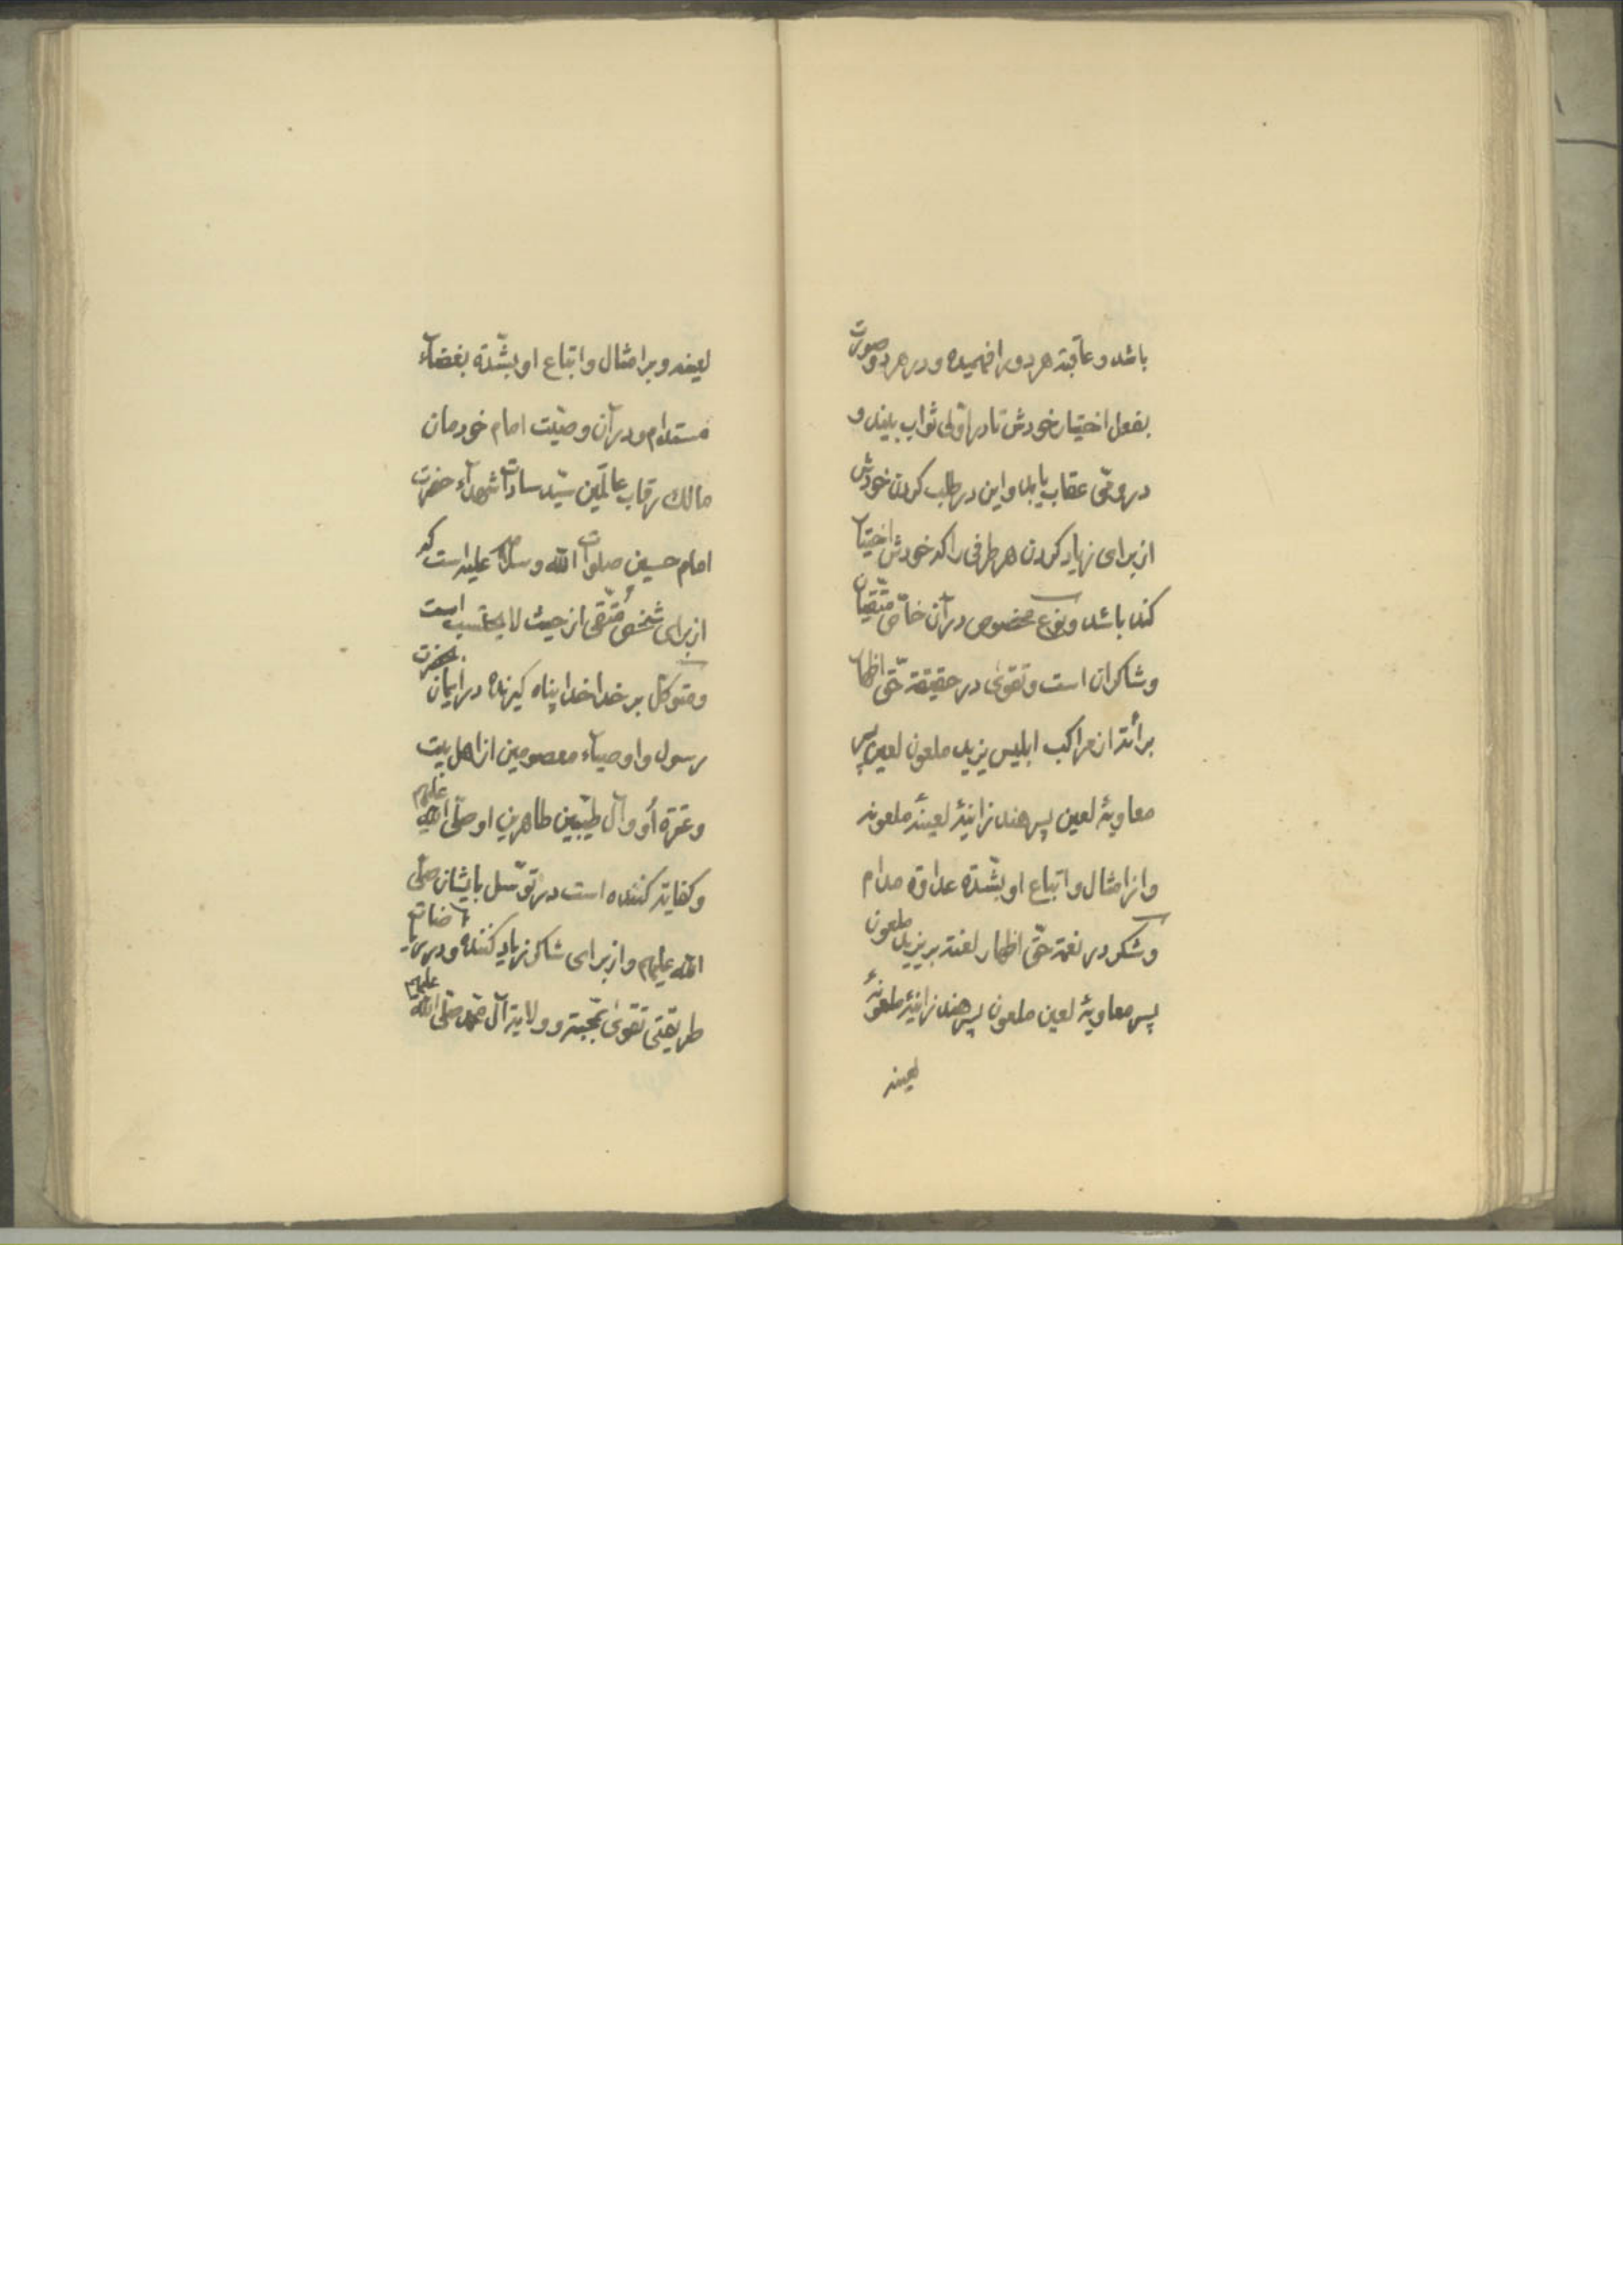 باشد و عاقبته هر دو را فهمیده و در هر دو صورت
بفعل اختیار خودش تا در اوّلی ثواب بیند و
در دویّمی عقاب یابد و این در طلب کردن خودش
از برای زیاد کردن هر طرفی را که خودش اختیار
کند باشد و نوع مخصوص در آن خاصّ متّقیان
و شاکران است و تقوی در حقیقة حتّی اظهار
برائة از مراکب ابلیس یزید ملعون لعین پسر
معاویهٔ لعین پسر هند زانیهٔ لعینهٔ ملعونه
و از امثال و اتباع او بشدّة عداوة مدام
و شکر در نعمة حتّی اظهار لعنة بر یزید ملعون
پسر معاویهٔ لعین ملعون پسر هند زانیهٔ ملعونهٔ
لعینه
لعینه و بر امثال و اتباع او بشدّة بغضاء
مستدام و در آن وصیّت امام خودمان
مالك رقاب عالمین سیّد سادات شهداء حضرت
امام حسین صلوات الله و سلامه علیه است که
از برای شخص متّقی از حیث لا یحتسب است
و متوکّل بر خدا خدا پناه گیرنده در ایمان بحضرت
رسول و اوصیاء معصومین از اهل بیت
و عترة او و آل طیّبین طاهرین او صلّی الله علیهم
و کفایة کننده است در توسّل بایشان صلّی
الله علیهم و از برای شاکر زیاد کننده و در
طریقتی تقوی بمحبة و ولایة آل محمد صلّی الله علیهم